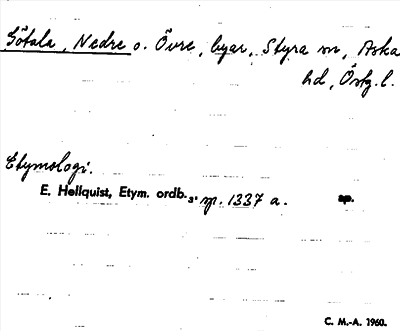 Götala, Nedre o. Övre, byar, Styra sn, Aska
hd, Östg. l.
Etymologi.
E. Hellquist, Etym. ordb.3, sp. 1337 a. sp.
C. M.-A. 1960.